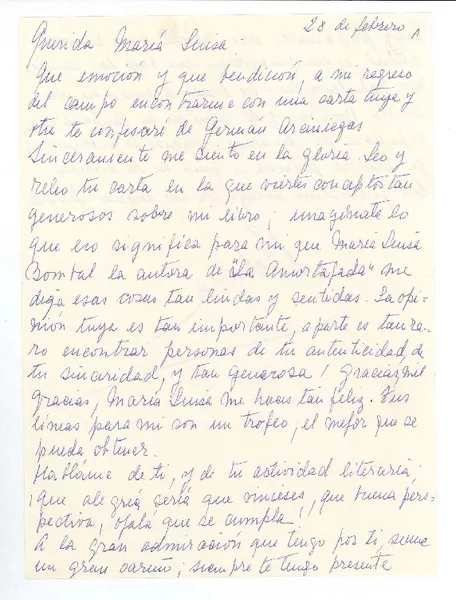 28 de febrero
Querida María Luisa:
Que emoción y que bendición, a mi regreso
del campo encontrarme con una carta tuya y
otra te confesaré de Germán Arciniegas
Sinceramente me siento en la gloria. Leo y
releo tu carta en la que viertes conceptos tan
generosos sobre mi libro; imagínate lo
que eso significa para mi que María Luisa
Bombal la autora de "La Amortajada" me
diga esas cosas tan lindas y sentidas. La opi-
nión tuya es tan importante, aparte es tan ra-
ro encontrar personas de tu autenticidad, de
tu sinceridad, y tan generosa! Gracias mil
gracias, María Luisa me haces tan feliz. Tus
líneas para mi son un trofeo, el mejor que se
pueda obtener.
Hablame de ti, y de tu actividad literaria,
¡que alegría sería que vinieses, que buena pers-
pectiva, ojalá que se cumpla,
A la gran admiración que tengo por ti, suma
un gran cariño; siempre te tengo presente